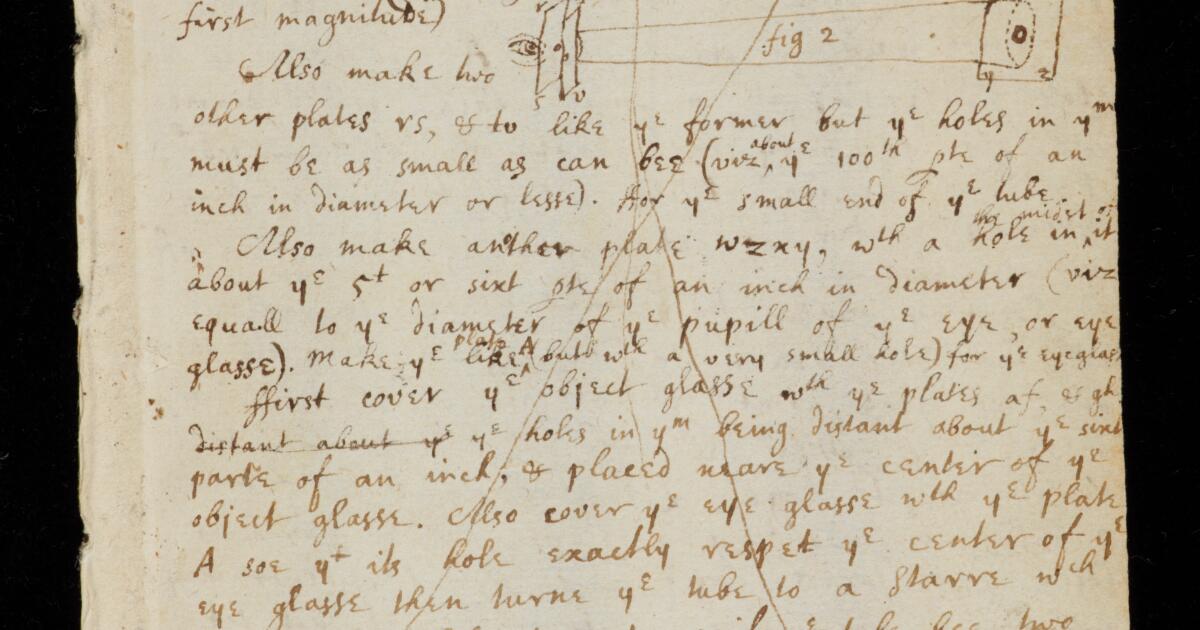 first magnitude)
fig 2
Also make two
other plates rs, & tv like yᵉ former but yᵉ holes in yᵐ
must be as small as can bee (viz about yᵉ 100ᵗʰ pte of an
inch in diameter or lesse). ffor yᵉ small end of yᵉ tube
Also make another plate wzxy, wᵗʰ a hole in the midst of it
about yᵉ 5ᵗ or sixt pte of an inch in diameter (viz
equall to yᵉ diameter of yᵉ pupill of yᵉ eye, or eye
glasse). Make yᵉ like plate A (but wᵗʰ a very small hole) for yᵉ eyeglass
ffirst cover yᵉ object glasse wᵗʰ yᵉ plates af, & gh
distant about yᵉ yᵉ holes in yᵐ being distant about yᵉ sixt
parte of an inch, & placed neare yᵉ center of yᵉ
object glasse. Also cover yᵉ eye glasse wᵗʰ yᵉ plate
A soe yᵗ its hole exactly respet yᵉ center of yᵉ
eye glasse then turne yᵉ tube to a Starre wᶜʰ
two